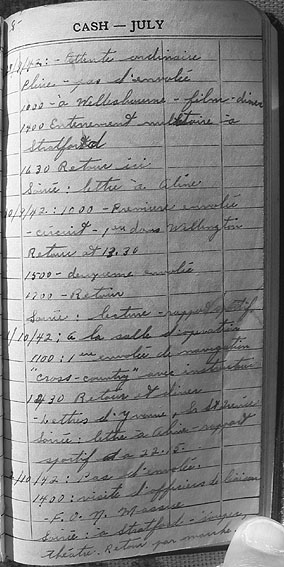 CASH — JULY
/9/42: - Attente ordinaire
Pluie - pas d'envolée
1000 - à Wellesbourne - film - diner
1400 Enterrement militaire à
Stratford
1630 Retour ici
Soirée: lettre à Aline
10/9/42: 1000 - Première envolée
- circuit - 1er dans Wellington
Retour at 13.30
1500 - deuxième envolée
1700 - Retour
Soirée: lecture - rapport sportif
/10/42: à la salle d'opération
1100: 1ère envolée de navigation
"cross-country" avec instructeur
1430 Retour et diner
- Lettres d'Yvonne, la
Soirée: lettre à Aline - rapport
sportif à 22.15.
/10/42: Pas d'envolée.
1400: visite d'officiers de liaison
- F.O. Masse
Soirée: à Stratford - souper,
théâtre. Retour par marche